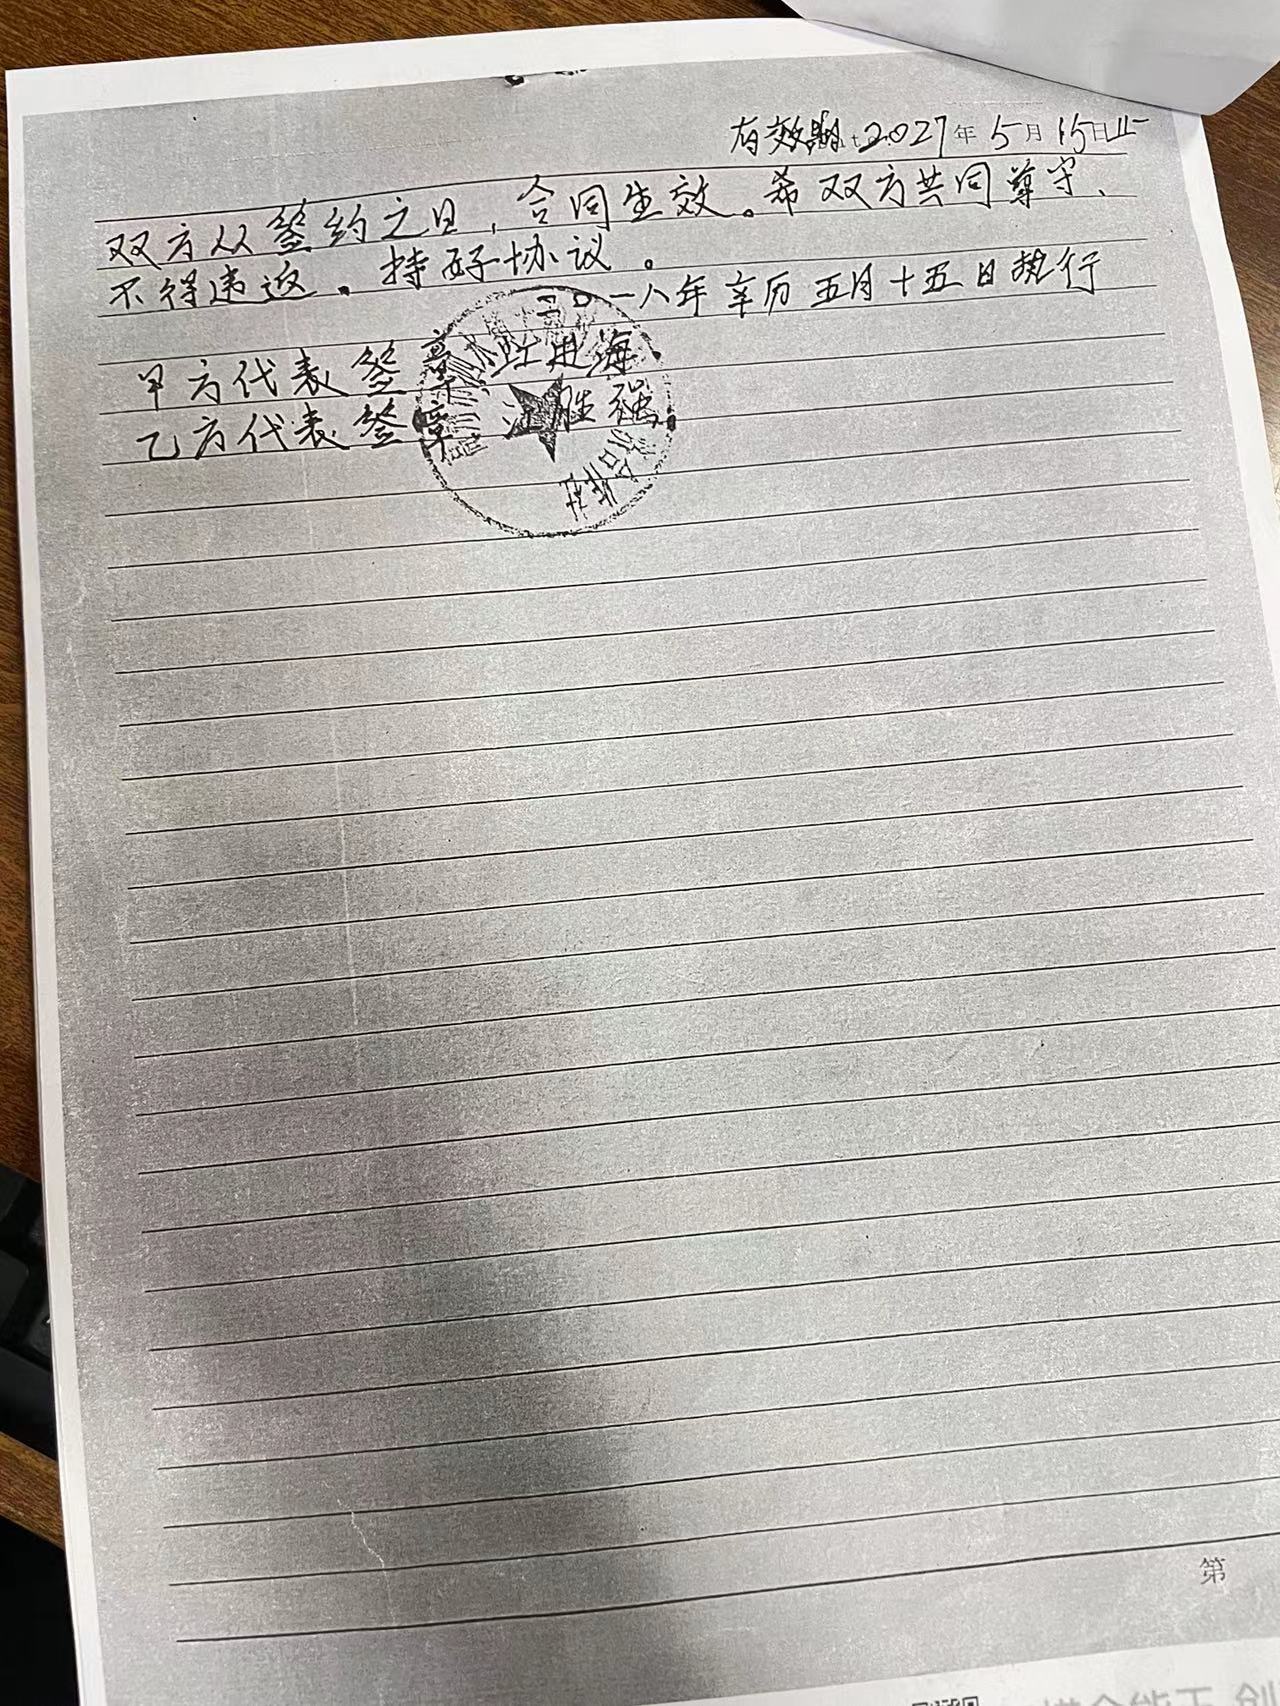 有效期 2027年5月15日止
双方从签约之日，合同生效。希双方共同尊守、
不得违返。持好协议。
二0一八年辛历五月十五日执行
甲方代表签章
乙方代表签章 江胜强
合作社
第